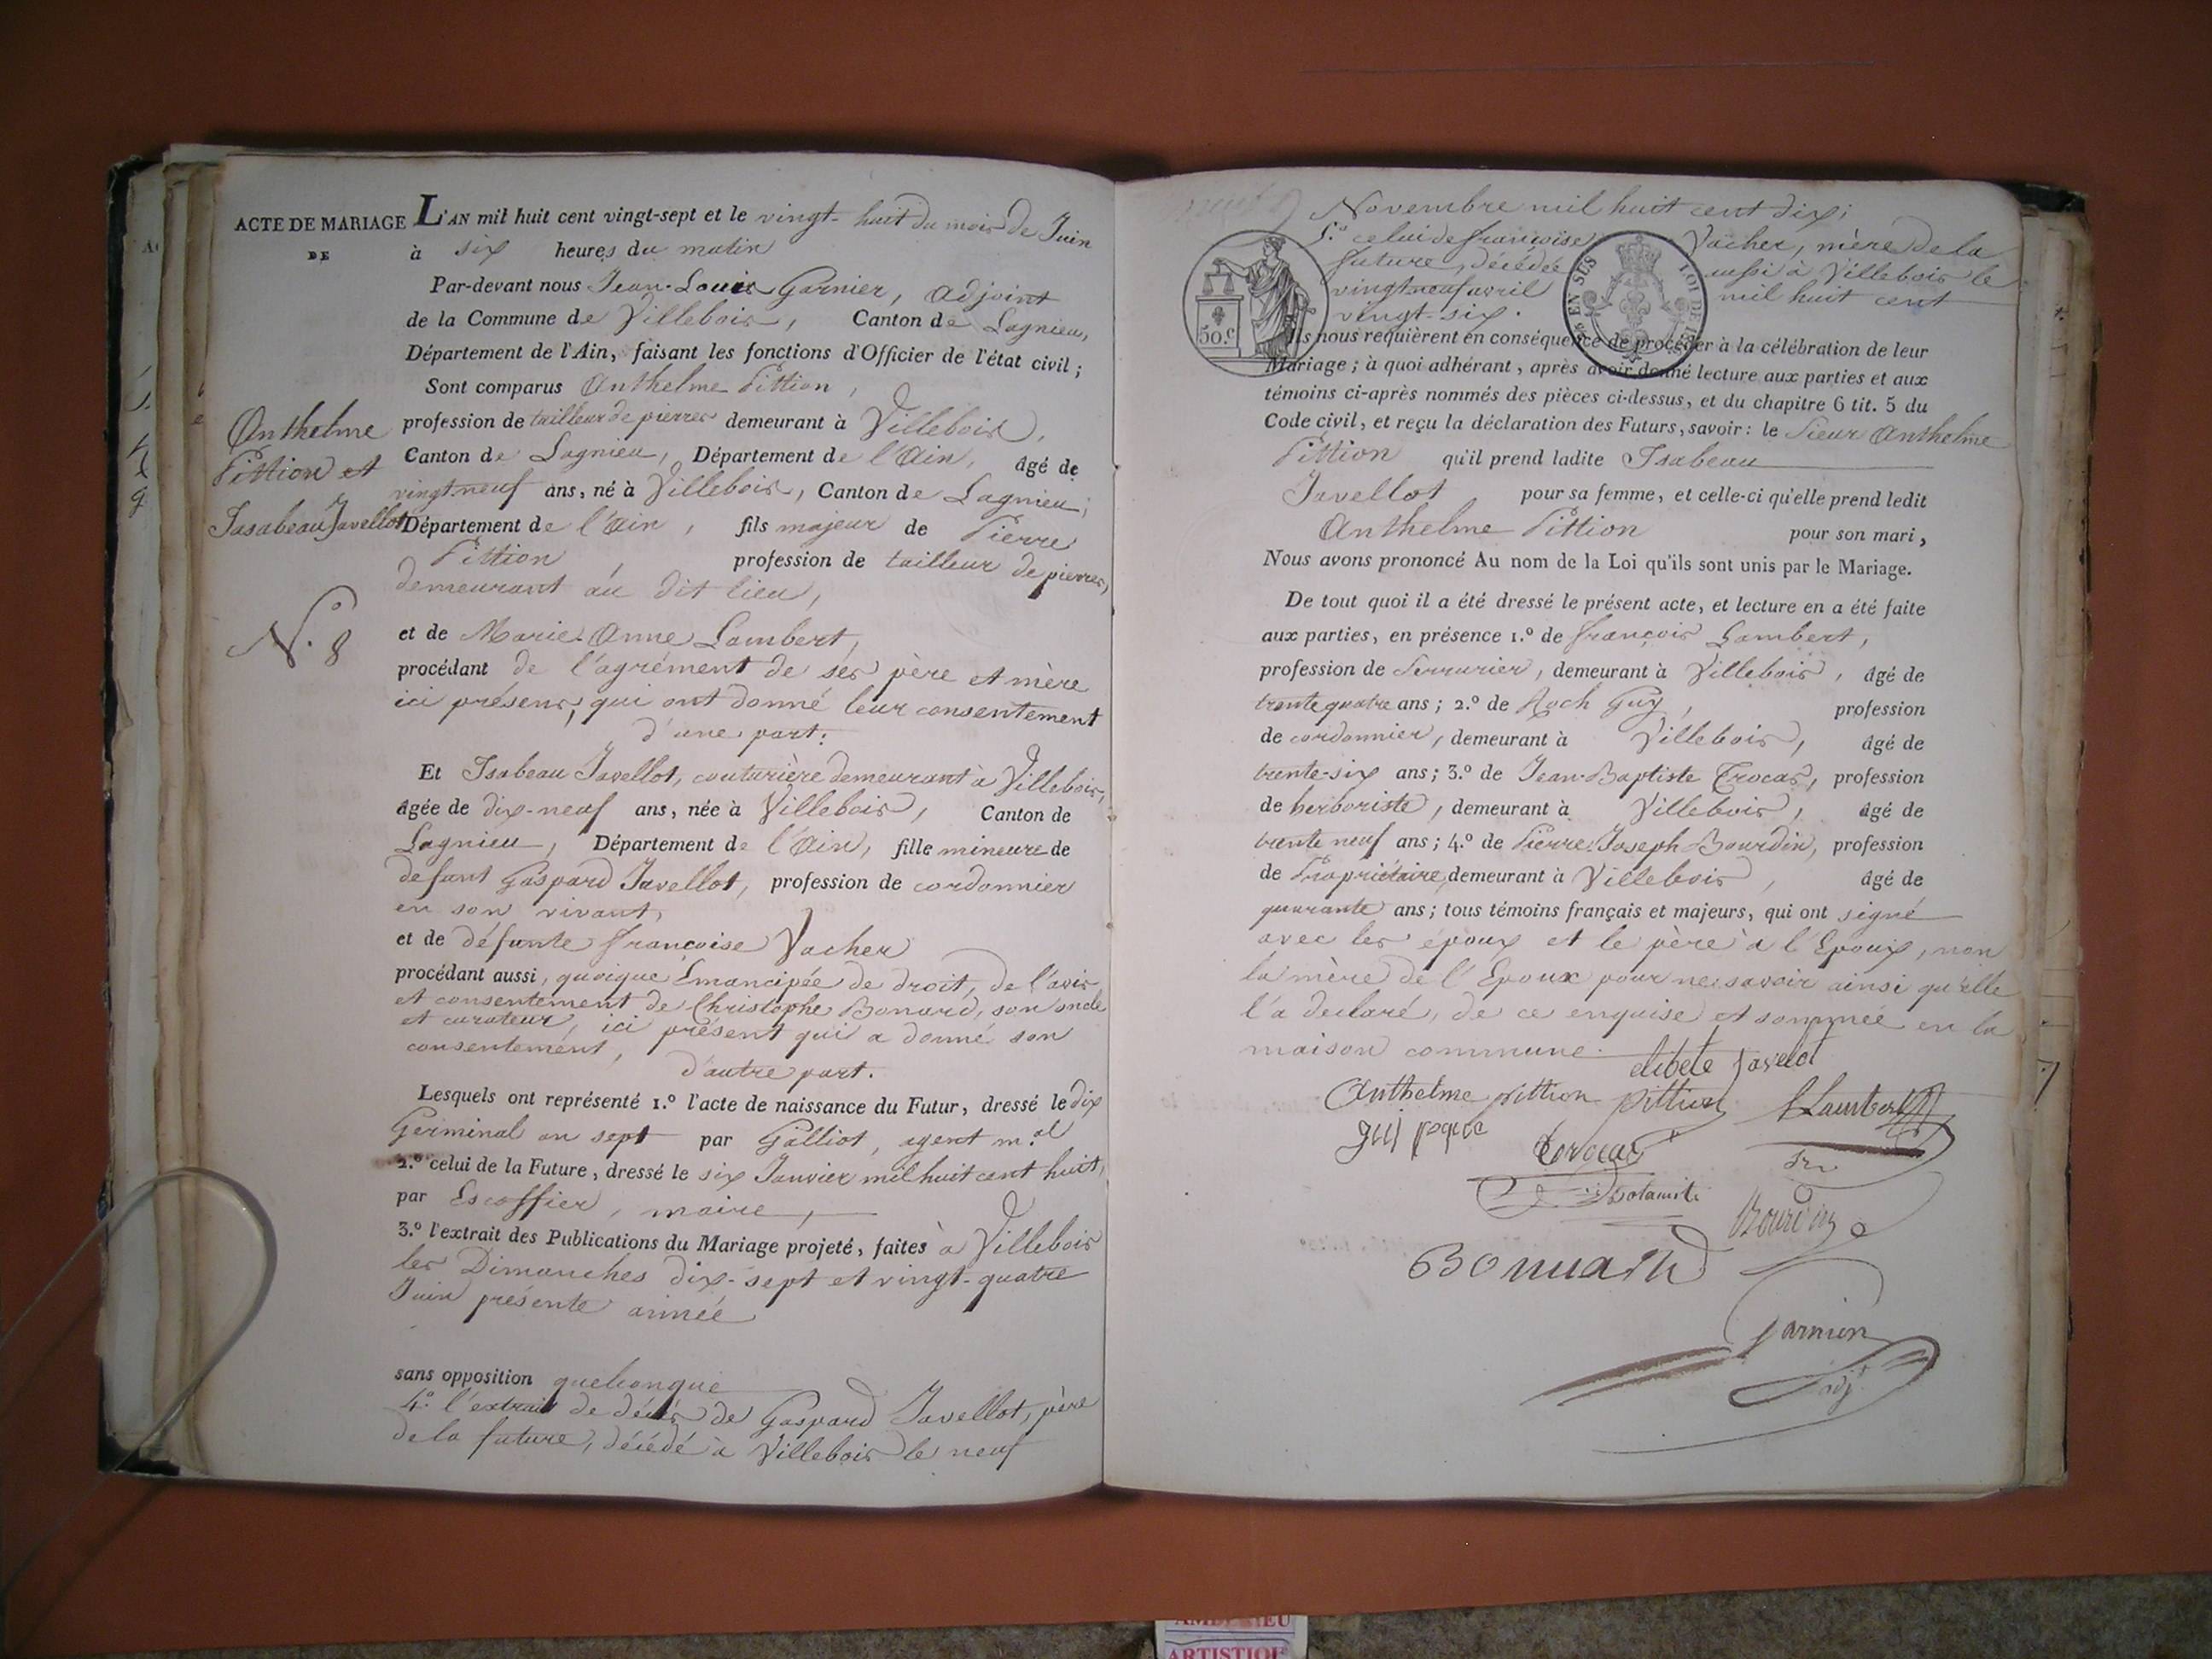 ACTE DE MARIAGE
DE
Anthelme
Pittion et
Jasabeau Javellot
N.º 8
L'AN mil huit cent vingt-sept et le vingt-huit du mois de Juin
à six heures du matin
Par-devant nous Jean-Louis Garnier, adjoint
de la Commune de Villebois, Canton de Lagnieu,
Département de l'Ain, faisant les fonctions d'Officier de l'état civil;
Sont comparus Anthelme Pittion,
profession de tailleur de pierres demeurant à Villebois,
Canton de Lagnieu, Département de l'Ain, âgé de
vingt-neuf ans, né à Villebois, Canton de Lagnieu,
Département de l'Ain, fils majeur de Pierre
Pittion, profession de tailleur de pierres,
demeurant au dit lieu,
et de Marie-Anne Lambert,
procédant de l'agrément de ses père et mère
ici présens, qui ont donné leur consentement
d'une part.
Et Isabeau Javellot, couturière demeurant à Villebois,
âgée de dix-neuf ans, née à Villebois, Canton de
Lagnieu, Département de l'Ain, fille mineure de
defunt Gaspard Javellot, profession de cordonnier
en son vivant,
et de défunte françoise Vacher
procédant aussi, quoique Émancipée de droit, de l'avis
et consentement de Christophe Bonard, son oncle
et curateur, ici présent qui a donné son
consentement,
d'autre part.
Lesquels ont représenté 1.º l'acte de naissance du Futur, dressé le dix
Germinal an sept par Galliot, agent m.al
2.º celui de la Future, dressé le six Janvier mil huit cent huit,
par Escoffier, maire,
3.º l'extrait des Publications du Mariage projeté, faites à Villebois
les Dimanches dix-sept et vingt-quatre
Juin présente année
sans opposition quelconque
4.º l'extrait de décès de Gaspard Javellot, père
de la future, décédé à Villebois le neuf
Novembre mil huit cent dix;
5.º celui de françoise Vacher, mère de la
future, décédée aussi à Villebois le
vingt neuf avril mil huit cent
vingt-six.
50.c
EN SES
LOI DE 18
Ils nous requièrent en conséquence de procéder à la célébration de leur
Mariage; à quoi adhérant, après avoir donné lecture aux parties et aux
témoins ci-après nommés des pièces ci-dessus, et du chapitre 6 tit. 5 du
Code civil, et reçu la déclaration des Futurs, savoir: le Sieur Anthelme
Pittion qu'il prend ladite Isabeau
Javellot pour sa femme, et celle-ci qu'elle prend ledit
Anthelme Pittion pour son mari,
Nous avons prononcé Au nom de la Loi qu'ils sont unis par le Mariage.
De tout quoi il a été dressé le présent acte, et lecture en a été faite
aux parties, en présence 1.º de françois Lambert,
profession de Serrurier, demeurant à Villebois, âgé de
trente quatre ans; 2.º de Roch Guy, profession
de cordonnier, demeurant à Villebois, âgé de
trente-six ans; 3.º de Jean-Baptiste Trocas, profession
de herboriste, demeurant à Villebois, âgé de
trente neuf ans; 4.º de Pierre Joseph Bourdin, profession
de Propriétaire, demeurant à Villebois, âgé de
quarante ans; tous témoins français et majeurs, qui ont signé
avec les époux et le père à l'Epoux, non
la mère de l'Epoux pour ne savoir ainsi qu'elle
l'a declaré, de ce enquise et sommée en la
maison commune.
Javelot
Anthelme pittion pittion Lambert
Bourdin
Bonnard
Garnier
adj.t
ARTISTIQUE